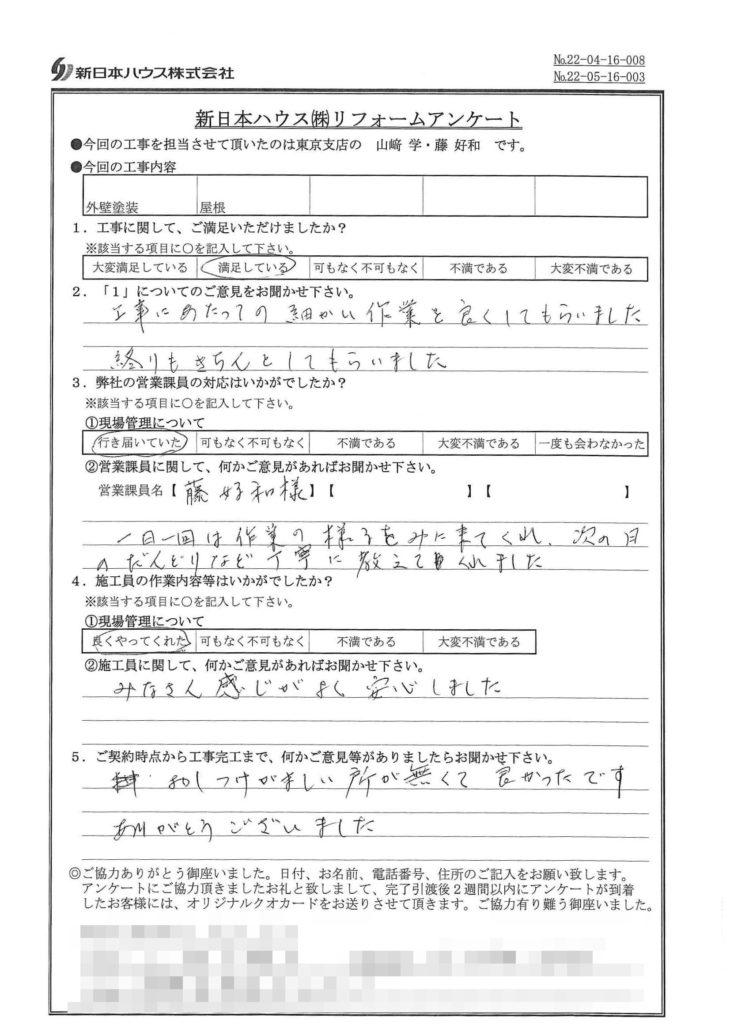 新日本ハウス株式会社
№22-04-16-008
№22-05-16-003
新日本ハウス㈱リフォームアンケート
●今回の工事を担当させて頂いたのは東京支店の 山﨑 学・藤 好和 です。
●今回の工事内容
外壁塗装 屋根
1．工事に関して、ご満足いただけましたか？
※該当する項目に○を記入して下さい。
大変満足している 満足している 可もなく不可もなく 不満である 大変不満である
2．「1」についてのご意見をお聞かせ下さい。
工事にあたっての 細かい 作業を良くしてもらいました
終りもきちんとしてもらいました
3．弊社の営業課員の対応はいかがでしたか？
※該当する項目に○を記入して下さい。
①現場管理について
行き届いていた 可もなく不可もなく 不満である 大変不満である 一度も会わなかった
②営業課員に関して、何かご意見があればお聞かせ下さい。
営業課員名【 藤 好和様 】【 】【 】
一日一回は作業の様子をみに来てくれ、次の日
のだんどりなど丁寧に教えてくれました
4．施工員の作業内容等はいかがでしたか？
※該当する項目に○を記入して下さい。
①現場管理について
良くやってくれた 可もなく不可もなく 不満である 大変不満である
②施工員に関して、何かご意見があればお聞かせ下さい。
みなさん感じがよく 安心しました
5．ご契約時点から工事完工まで、何かご意見等がありましたらお聞かせ下さい。
おしつけがましい所が無くて 良かったです
ありがとうございました
◎ご協力ありがとう御座いました。日付、お名前、電話番号、住所のご記入をお願い致します。
アンケートにご協力頂きましたお礼と致しまして、完了引渡後２週間以内にアンケートが到着
したお客様には、オリジナルクオカードをお送りさせて頂きます。ご協力有り難う御座いました。